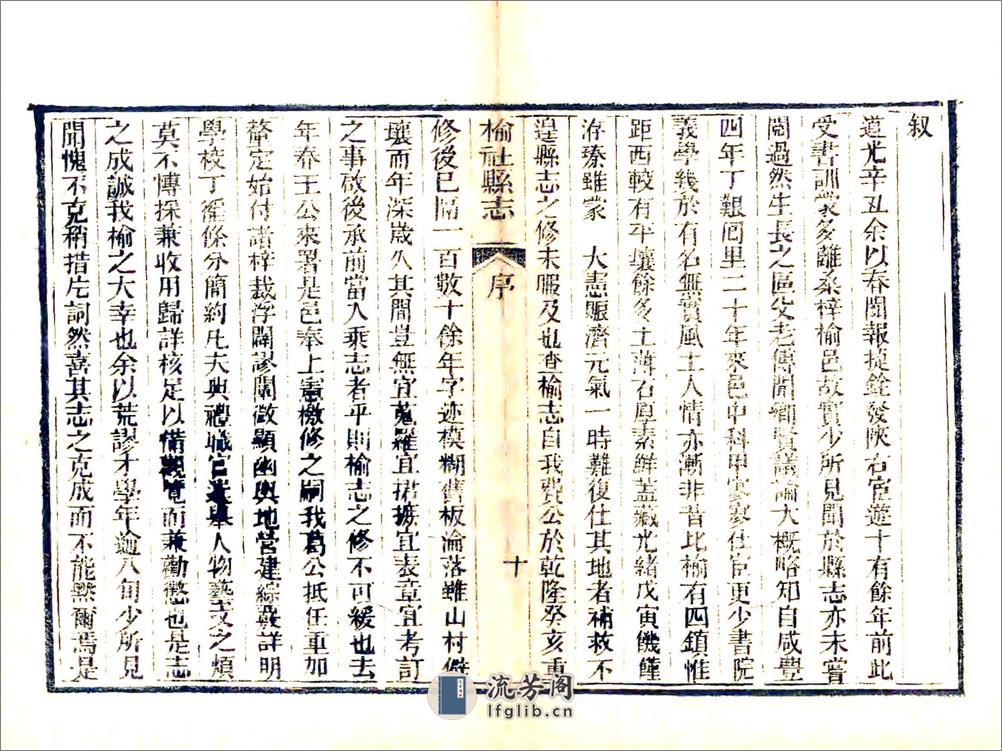 叙
道光辛丑余以春闈報捷銓發陝右宦遊十有餘年前此
受書訓蒙多離桑梓榆邑故實少所見聞於縣志亦未嘗
閱過然生長之區父老傳聞鄉賢議論大概略知自咸豐
四年丁艱囘里二十年來邑中科甲寥寥仕宦更少書院
義學幾於有名無實風土人情亦漸非昔比榆有四鎮惟
距西較有平壤餘多土薄石厚素鮮蓋藏光緒戊寅饑饉
洊臻雖蒙　大憲賑濟元氣一時難復仕其地者補救不
遑縣志之修未暇及也查榆志自我費公於乾隆癸亥重
榆社縣志　序　十
修後已隔一百數十餘年字迹模糊舊板淪落雖山村僻
壤而年深歲久其間豈無宜蒐羅宜捃摭宜表章宜考訂
之事啟後承前當人乘志者乎則榆志之修不可緩也去
年春王公來署是邑奉上憲檄修之嗣我葛公抵任重加
釐定始付諸梓裁浮闢謬闡微顯幽輿地營建綜覈詳明
學校丁徭條分簡約凡夫典禮職官選舉人物藝文之類
莫不博採兼收用歸詳核足以備觀覽而兼勸懲也是志
之成誠我榆之大幸也余以荒謬才學年逾八旬少所見
聞愧不克稍措片詞然喜其志之克成而不能默爾焉是
流芳阁
lfglib.cn